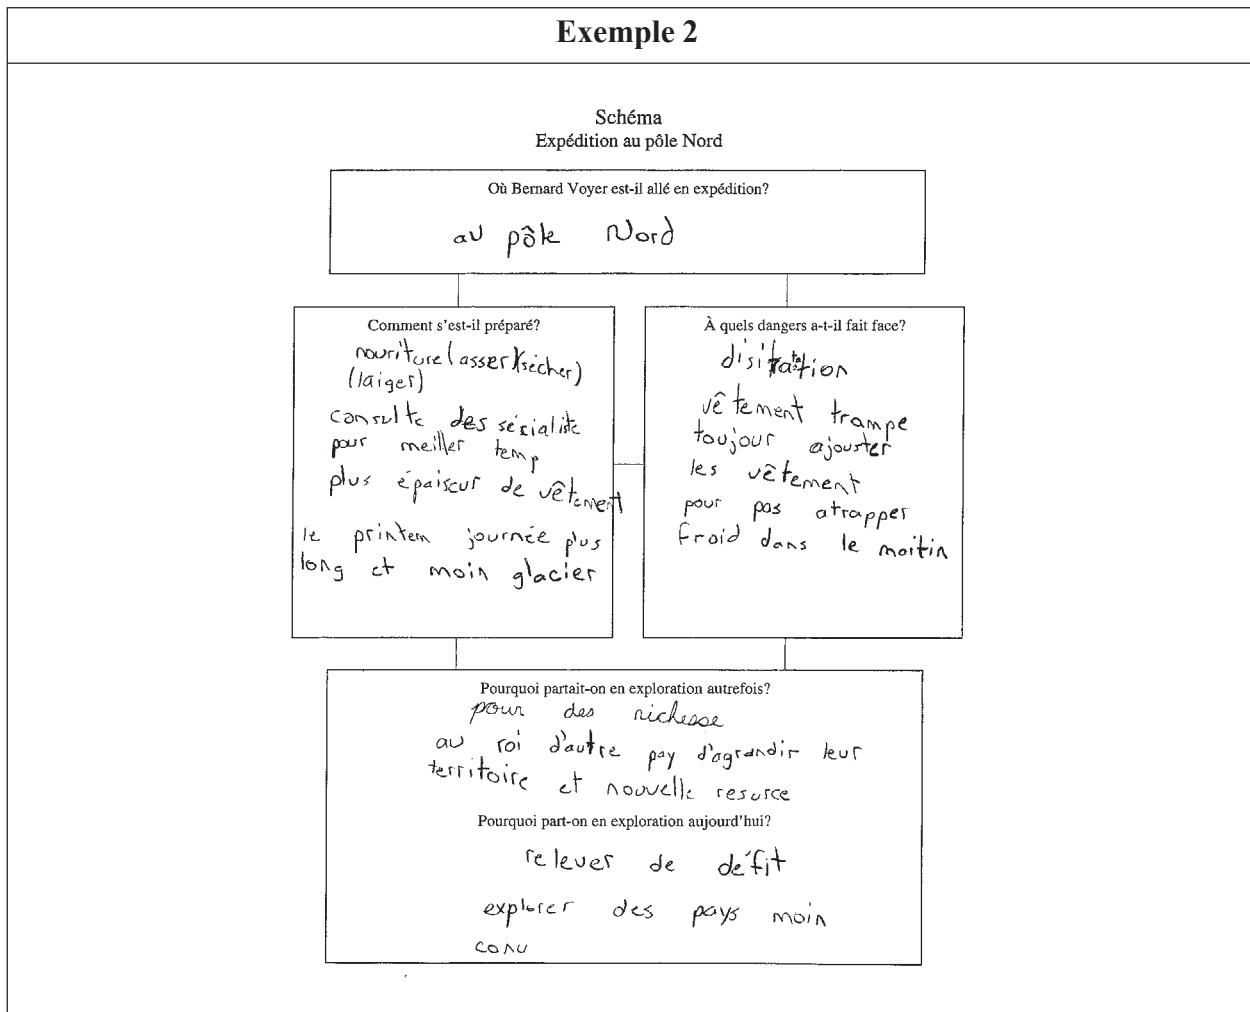 Exemple 2
Schéma
Expédition au pôle Nord
Où Bernard Voyer est-il allé en expédition?
au pôle Nord
Comment s'est-il préparé?
nouriture (asser) (sécher)
(laiger)
consulte des sésialiste
pour meiller temp
plus épaiseur de vêtement
le printem journée plus
long et moin glacier
À quels dangers a-t-il fait face?
vêtement trampe
toujour ajouster
les vêtement
pour pas atrapper
froid dans le maitin
Pourquoi partait-on en exploration autrefois?
pour des richesse
au roi d'autre pay d'agrandir leur
territoire et nouvelle resurce
Pourquoi part-on en exploration aujourd'hui?
relever de défit
explorer des pays moin
conu